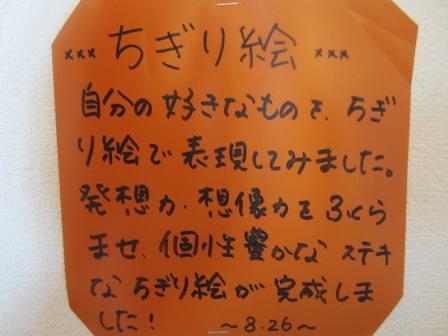 xxx ちぎり絵 xxx
自分の好きなものを、ちぎ
り絵で表現してみました。
発想力、想像力をふくら
ませ、個性豊かなステキ
なちぎり絵が完成しま
した！ ～8.26～